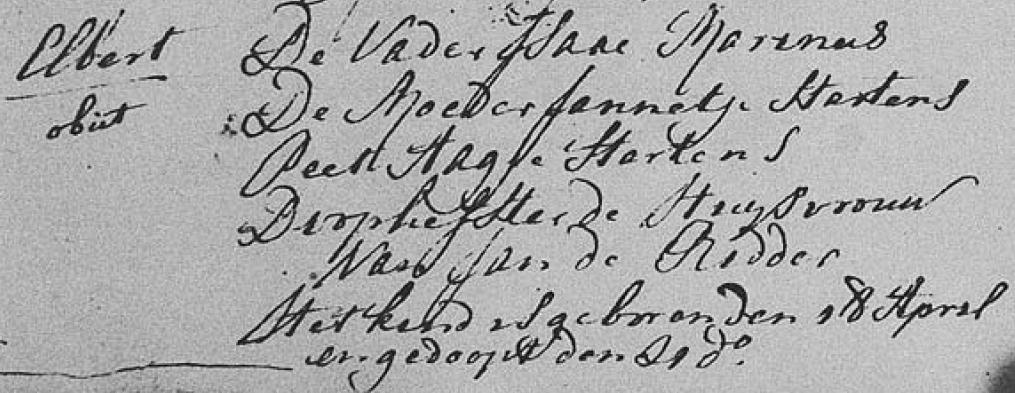 Elbert
obiit
De Vader Isaac Marinus
De Moeder Jannetje Hertens
Peet Aagje Hertens
Doophefster de Huysvrouw
Van Jan de Ridder
Het kind is geboren den 18 April
en gedoopt den 21 do.